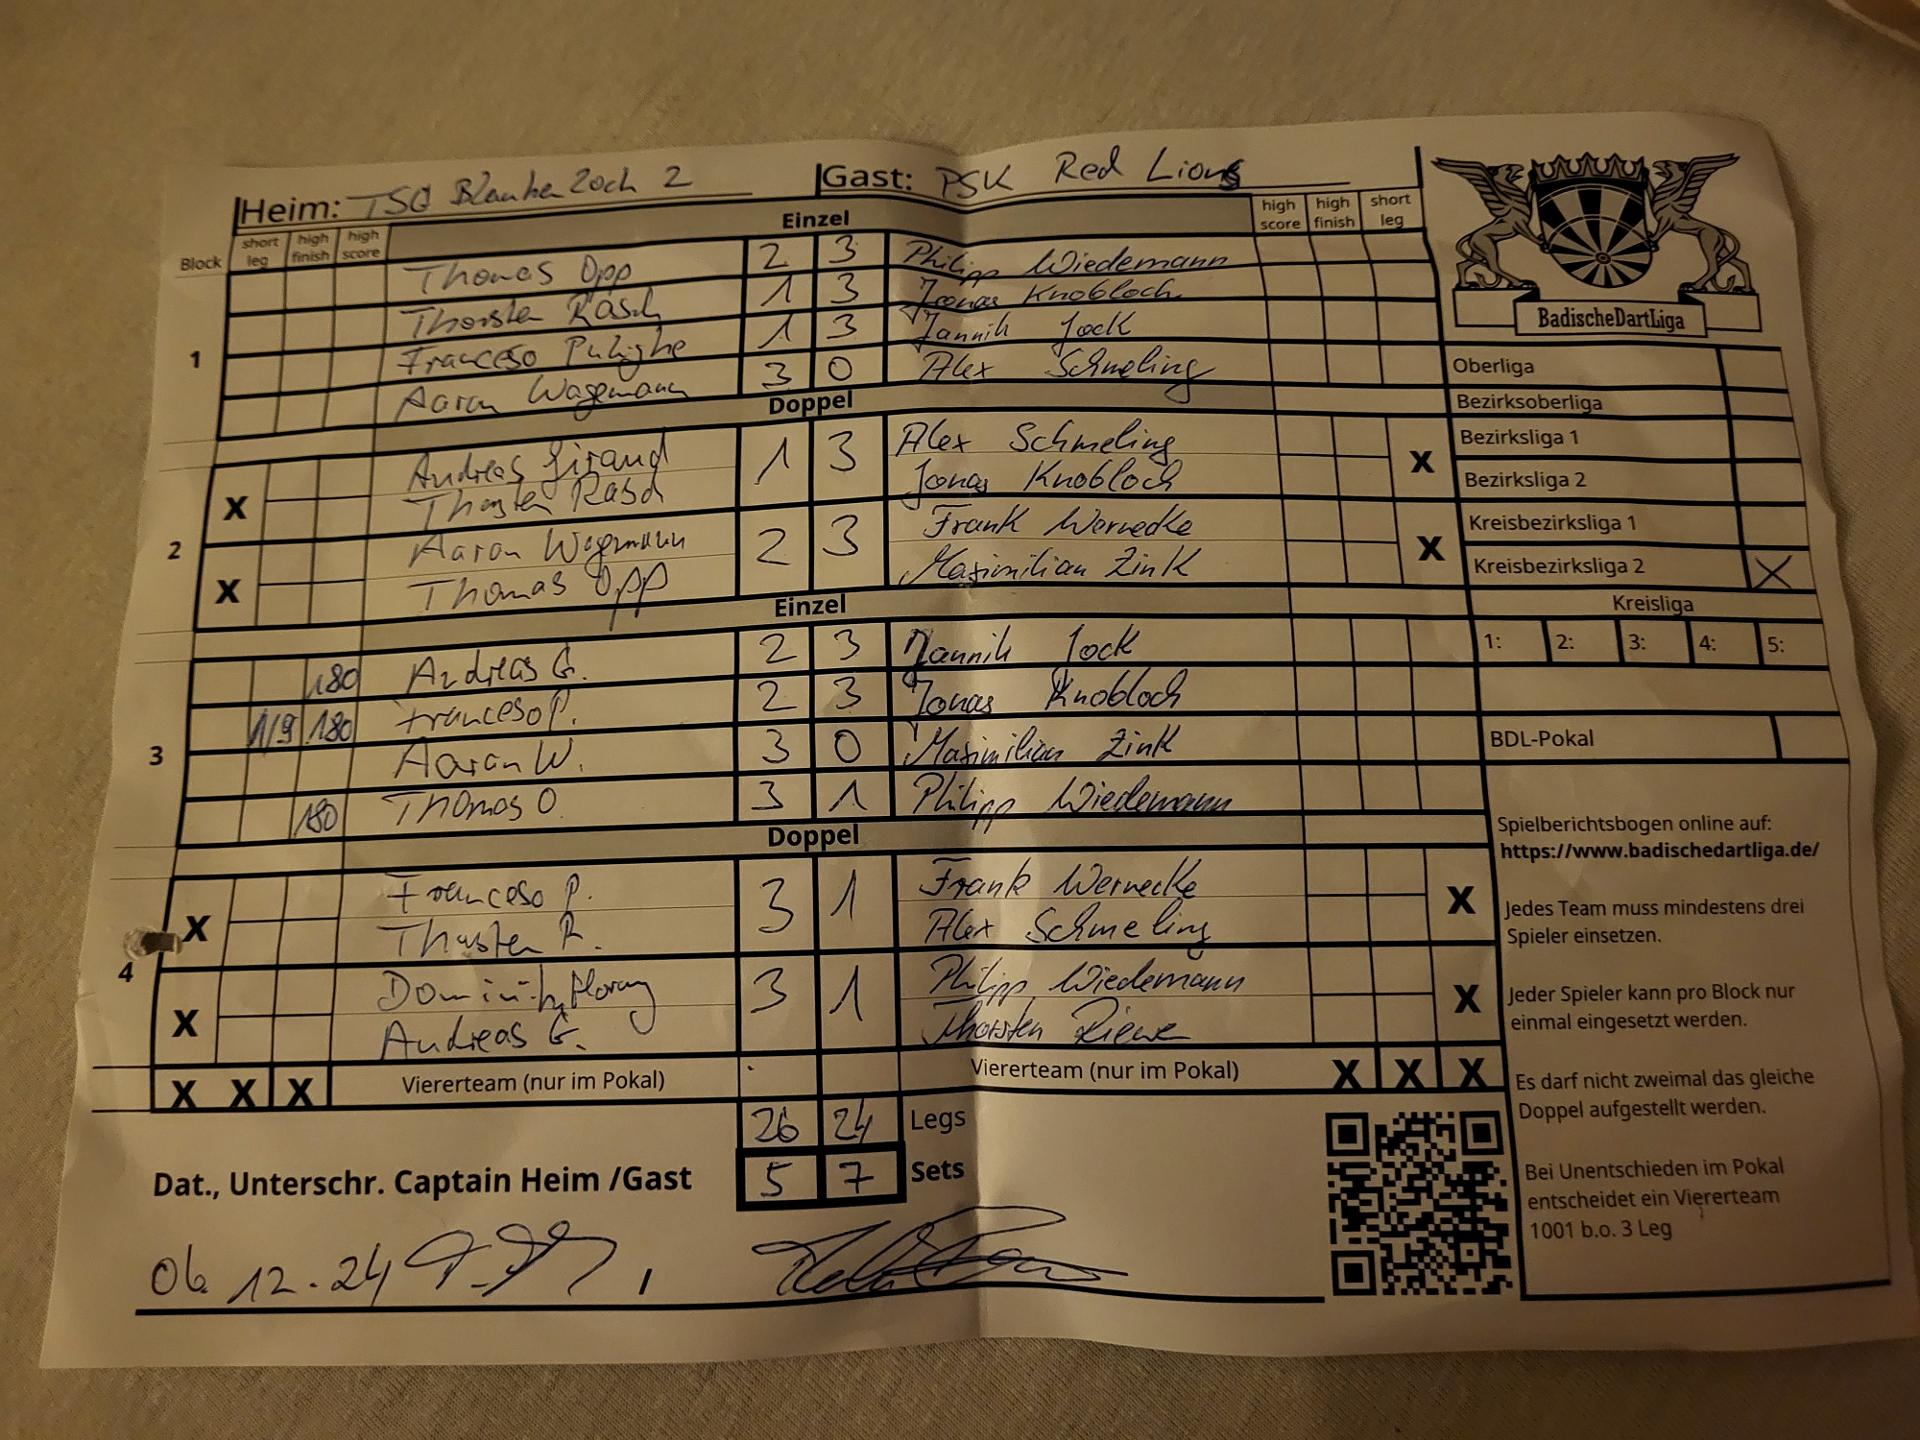 Heim: TSG Blankenloch 2 Gast: PSK Red Lions
Block short leg high finish high score Einzel high score high finish short leg
1
Thomas Opp 2 3 Philipp Wiedemann
Thorsten Rasch 1 3 Jonas Knobloch
Franceso Pulighe 1 3 Jannik Jock
Aaron Wagemann 3 0 Alex Schmeling
Doppel
2
X Andreas Girand 1 3 Alex Schmeling X
Thorsten Rasch Jonas Knobloch
X Aaron Wagemann 2 3 Frank Wernecke X
Thomas Opp Maximilian Zink
Einzel
3
180 Andreas G. 2 3 Jannik Jock
119 180 Franceso P. 2 3 Jonas Knobloch
Aaron W. 3 0 Maximilian Zink
180 Thomas O. 3 1 Philipp Wiedemann
Doppel
4
X Franceso P. 3 1 Frank Wernecke X
Thorsten R. Alex Schmeling
X Dominik 3 1 Philipp Wiedemann X
Andreas G. Thorsten Riewe
X X X Viererteam (nur im Pokal) Viererteam (nur im Pokal) X X X
26 24 Legs
5 7 Sets
Dat., Unterschr. Captain Heim /Gast
06.12.24
BadischeDartLiga
Oberliga
Bezirksoberliga
Bezirksliga 1
Bezirksliga 2
Kreisbezirksliga 1
Kreisbezirksliga 2 X
Kreisliga
1: 2: 3: 4: 5:
BDL-Pokal
Spielberichtsbogen online auf:
https://www.badischedartliga.de/
Jedes Team muss mindestens drei
Spieler einsetzen.
Jeder Spieler kann pro Block nur
einmal eingesetzt werden.
Es darf nicht zweimal das gleiche
Doppel aufgestellt werden.
Bei Unentschieden im Pokal
entscheidet ein Viererteam
1001 b.o. 3 Leg